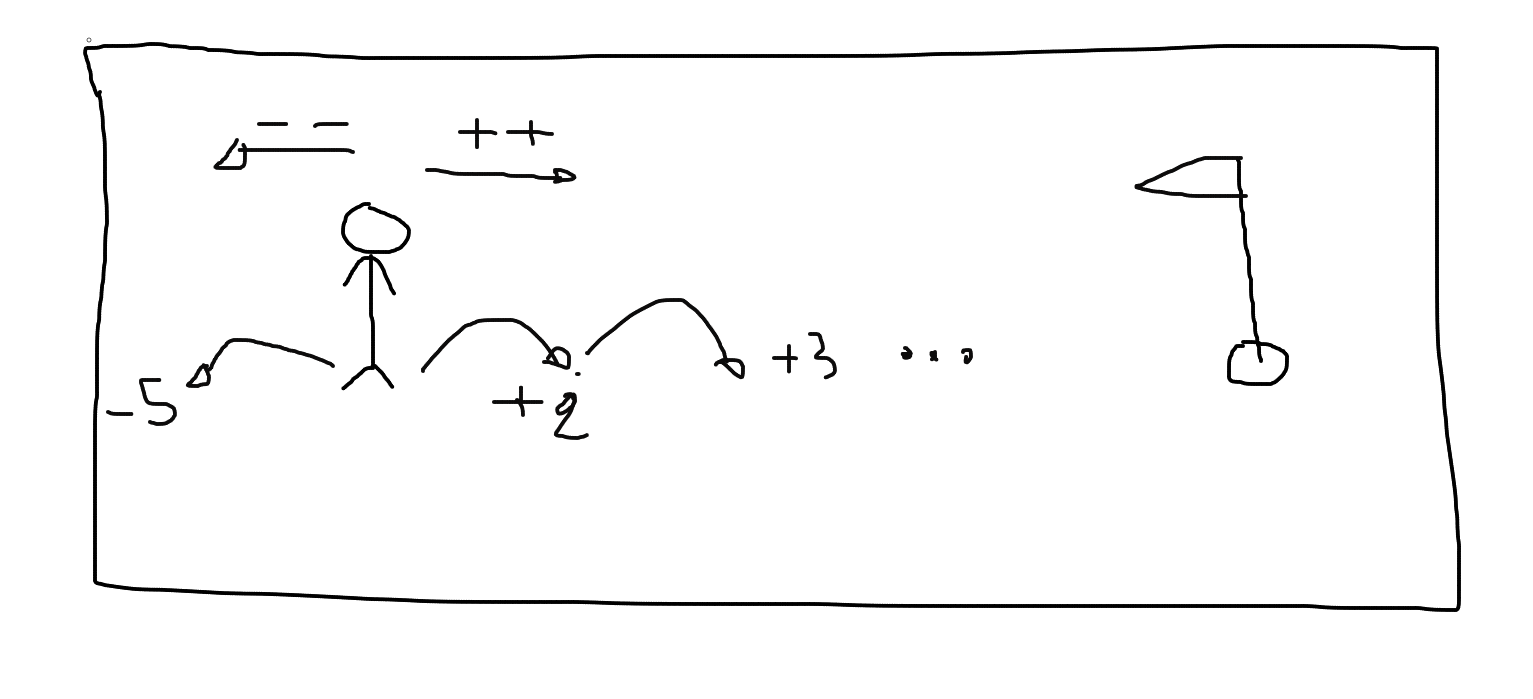 -- ++
-5 +2 +3 ...